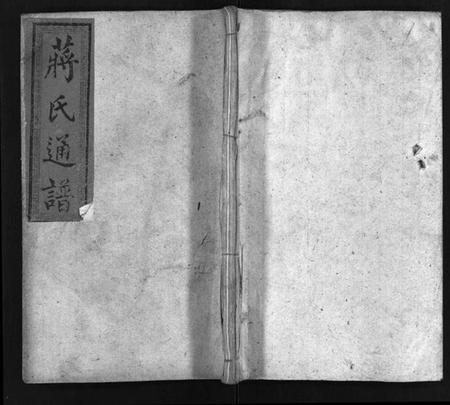 蔣氏通譜